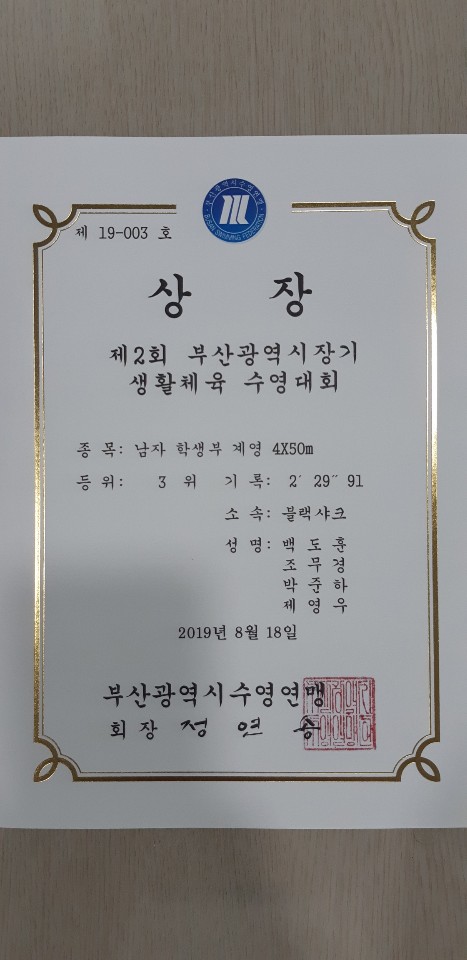 부산광역시수영연맹
BUSAN SWIMMING FEDERATION
제 19-003 호
상 장
제2회 부산광역시장기
생활체육 수영대회
종 목: 남자 학생부 계영 4X50m
등 위: 3 위 기 록: 2′ 29″ 91
소 속: 블랙샤크
성 명: 백 도 훈
조 무 경
박 준 하
제 영 우
2019년 8월 18일
부산광역시수영연맹
회 장 정 연 승